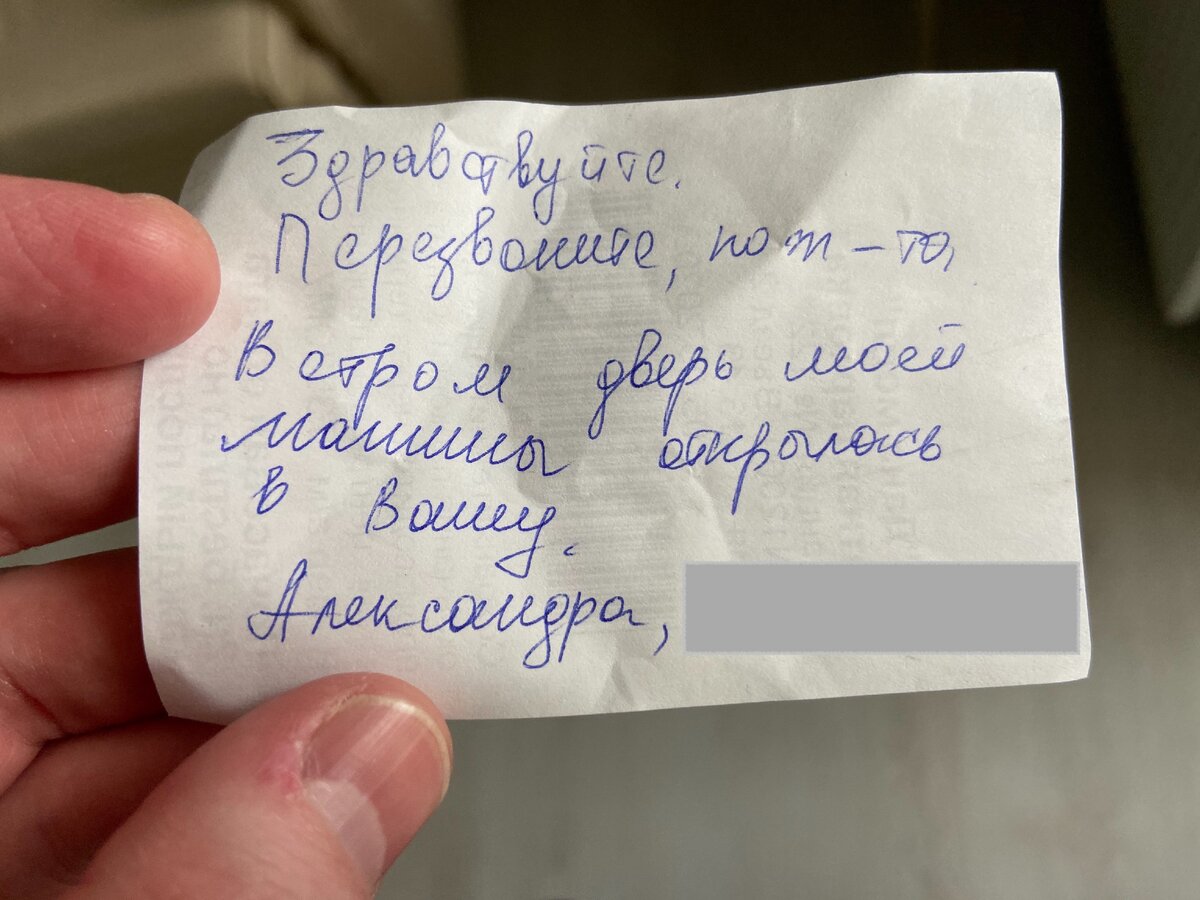 Здравствуйте.
Перезвоните, пож-та,
В стром дверь моей
машины открылась
в Вашу.
Александра,